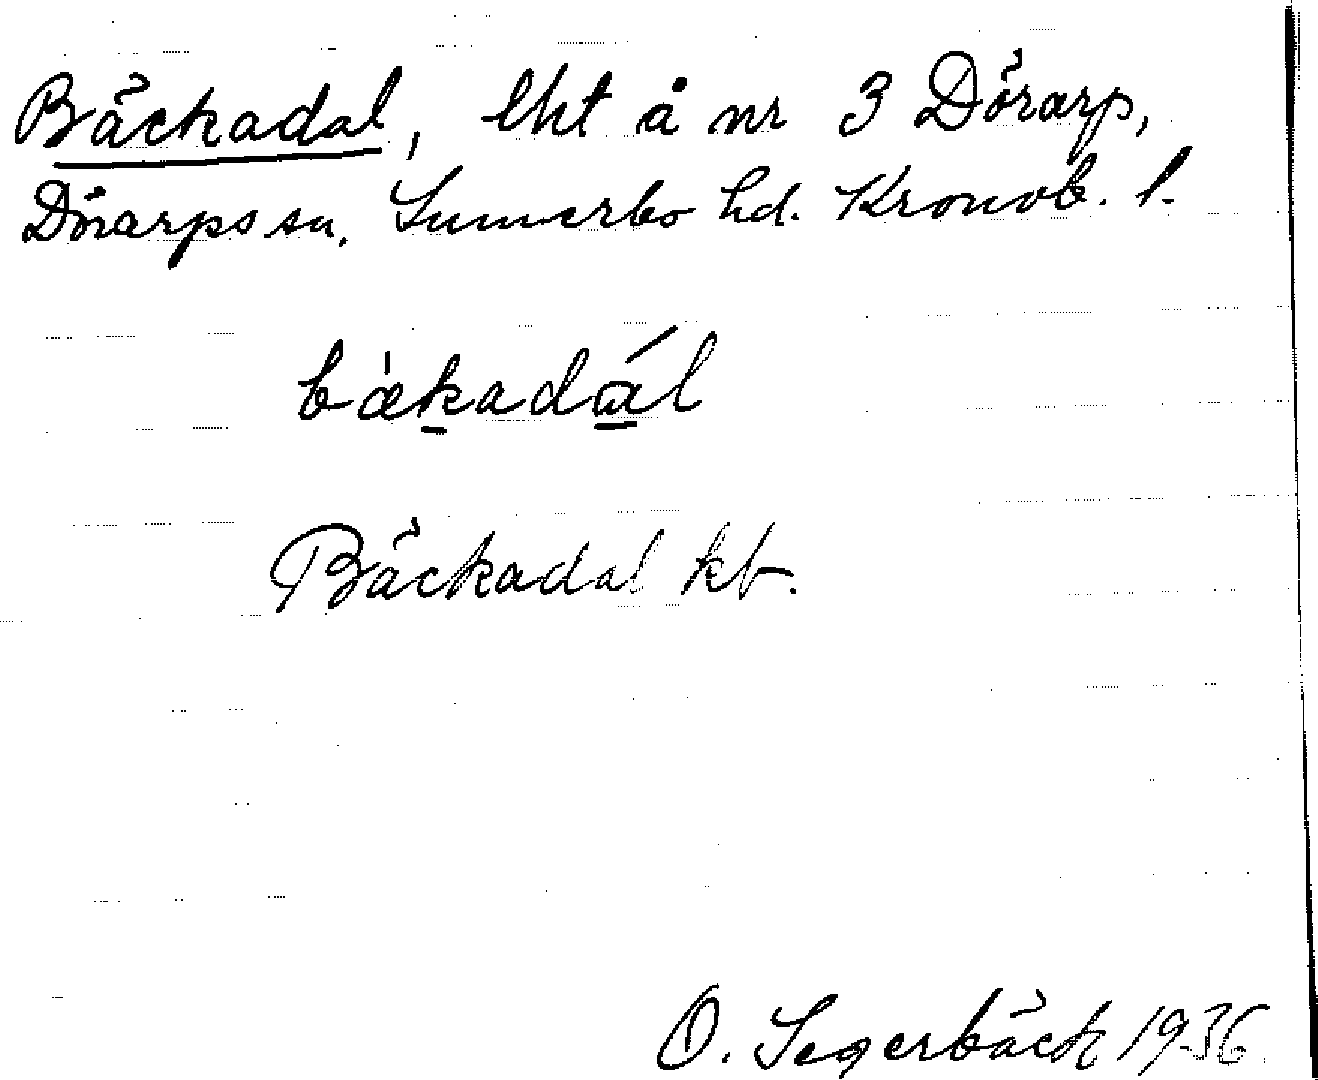 Bäckadal, lht å nr 3 Dörarp,
Dörarps sn, Sunnerbo hd. Kronob. l.
bækadál
Bäckadal kb.
O. Segerbäck 1936